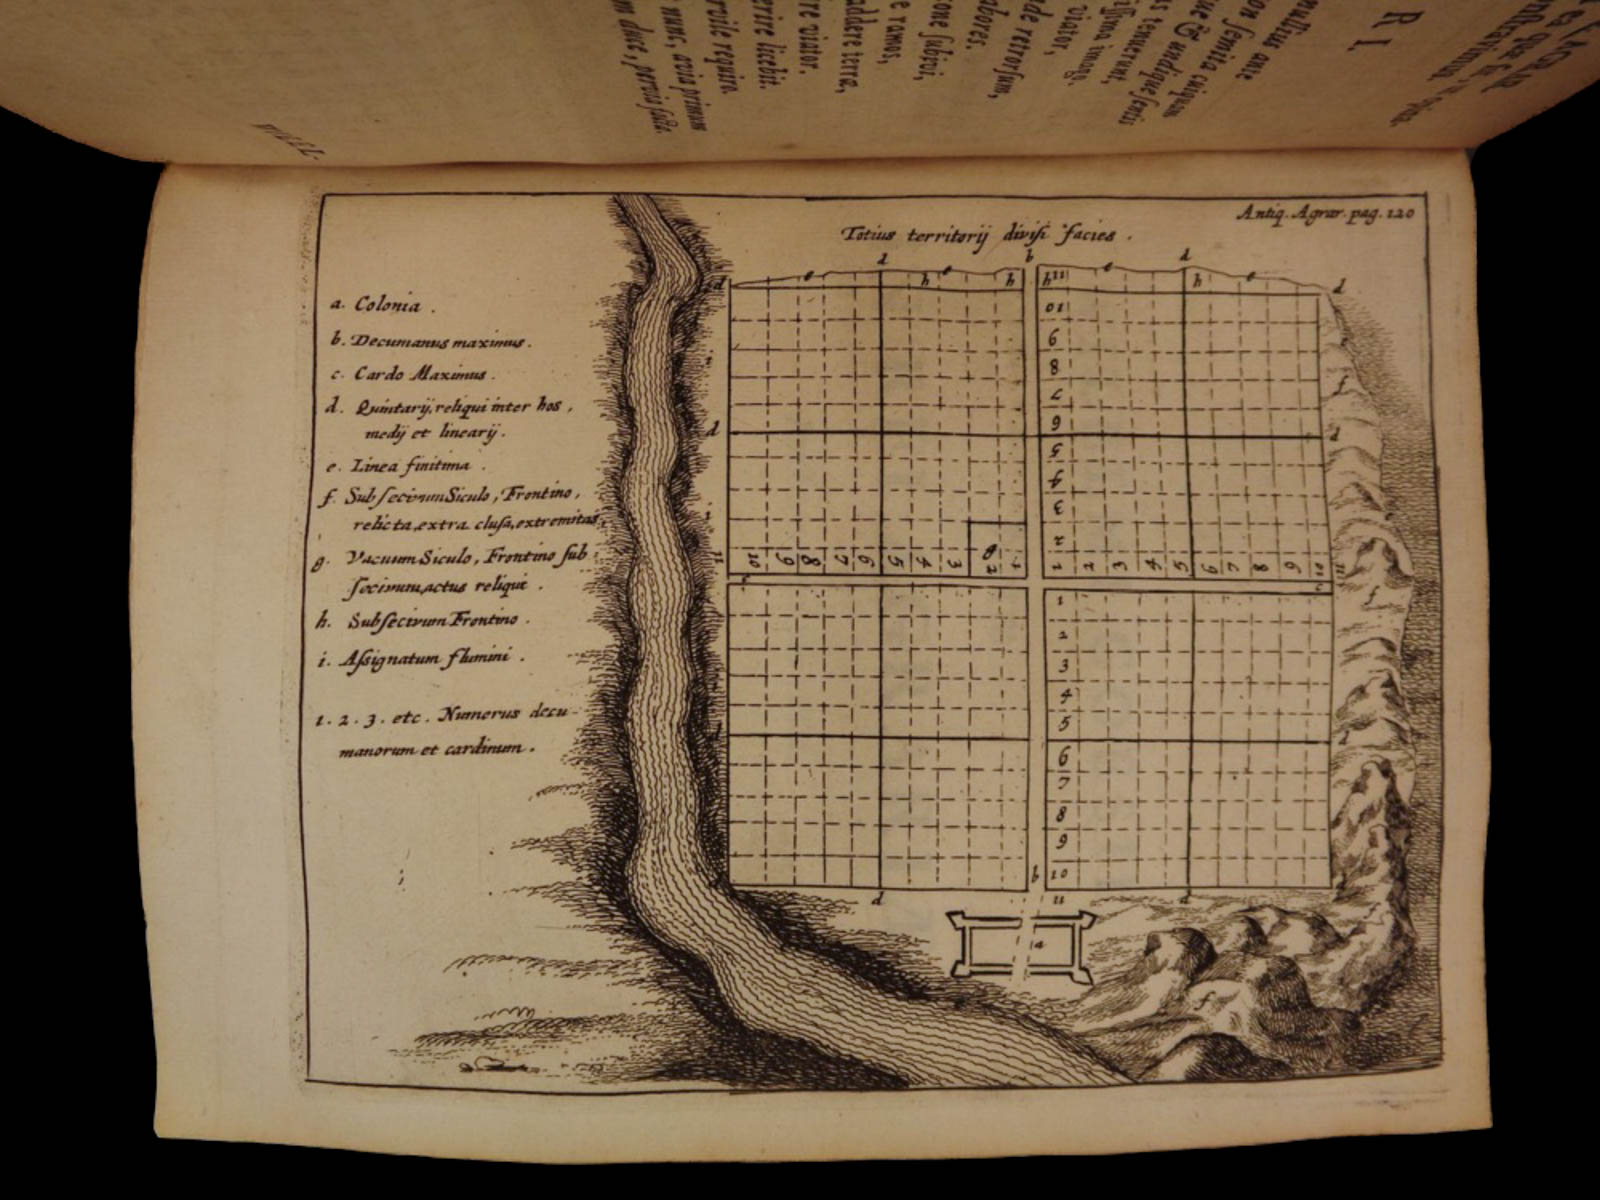 Antiq. Agrar. pag. 120
Totius territorij divisi facies.
a. Colonia.
b. Decumanus maximus.
c. Cardo Maximus.
d. Quintarij, reliqui inter hos,
medij et linearij.
e. Linea finitima.
f. Subsecivum Siculo, Frontino,
relicta, extra clusa, extremitas.
g. Vacuum Siculo, Frontino sub-
secivum, actus reliqui.
h. Subsecivum Frontino.
i. Assignatum flumini.
1. 2. 3. etc. Numerus decu-
manorum et cardinum.
R I.
multus ante
viator,
de retrorsum,
labores.
e ramos,
addere terræ,
re viator.
erire licebit.
rvile requiro.
nunc, avia primum
duce, pervia facta.
d b d
e e e e
d h h h 11 h d
10
9
8
7
6
d d
5
4
3
2
11 10 9 8 7 6 5 4 3 2 1 g 1 2 3 4 5 6 7 8 9 10 11
1
2
3
4
5
d d
6
7
8
9
10
b
d 11 d
a
f
f
f
f
i
i